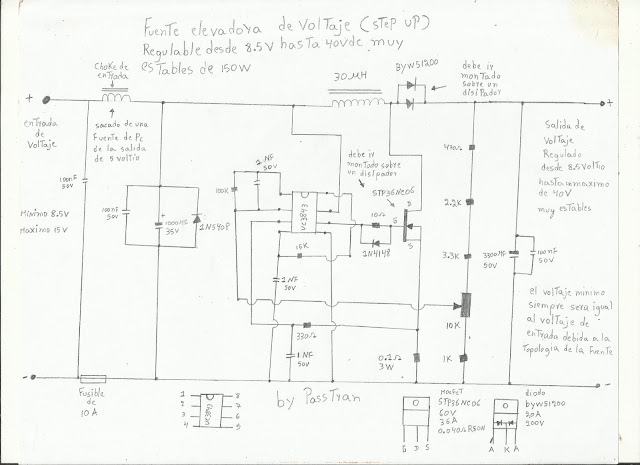 Fuente elevadora de Voltaje (step up)
Regulable desde 8.5V hasta 40vdc muy
estables de 150W
choke de
entrada
30MH
BYW51200
debe ir
montado
sobre un
disipador
+
+
entrada
de
Voltaje
sacado de una
Fuente de Pc
de la salida
de 5 voltio
debe ir
montado sobre
un disipador
STP36NC06
470Ω
Salida
de
Voltaje
Regulado
desde 8.5 Voltio
hasta maximo
de 40V
muy estables
100NF
50V
100K
50V
D
G
S
10Ω
1N4148
2.2K
Minimo 8.5V
Maximo 15V
100NF
50V
+
35V
1N5408
15K
1NF
50V
3.3K
3300MF
50V
100NF
50V
10K
el voltaje minimo
siempre sera igual
al voltaje de
entrada debida a la
topologia de la Fuente
330Ω
1NF
50V
0.2Ω
3W
1K
-
-
Fusible
de
10A
1
2
3
4
8
7
6
5
by PassTran
Mosfet
STP36NC06
60V
36A
G D S
diodo
byW51200
20A
200V
A K A